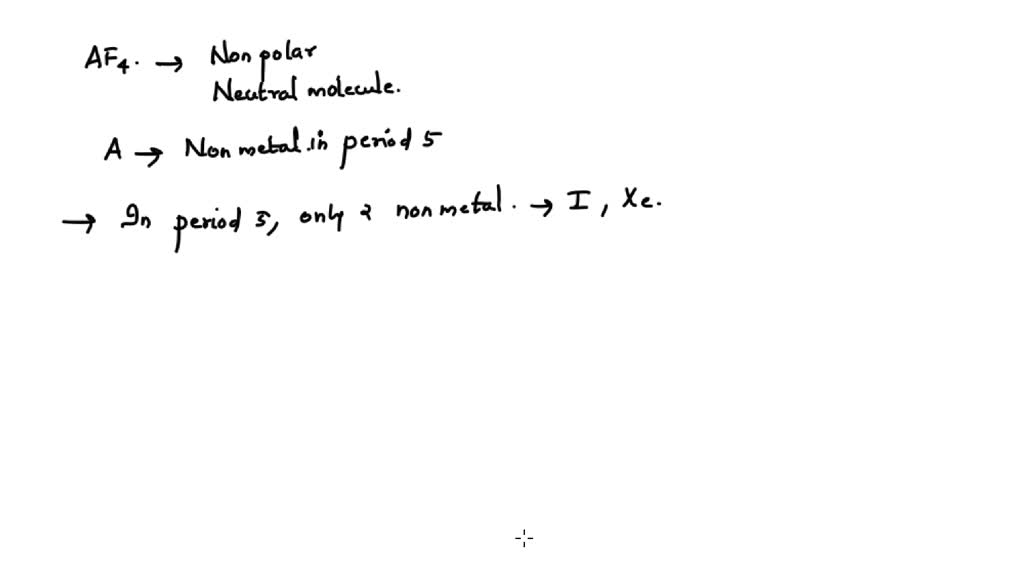 AF4. → Non polar
Neutral molecule.
A → Non metal in period 5
→ In period 5, only 2 non metal. → I, Xe.